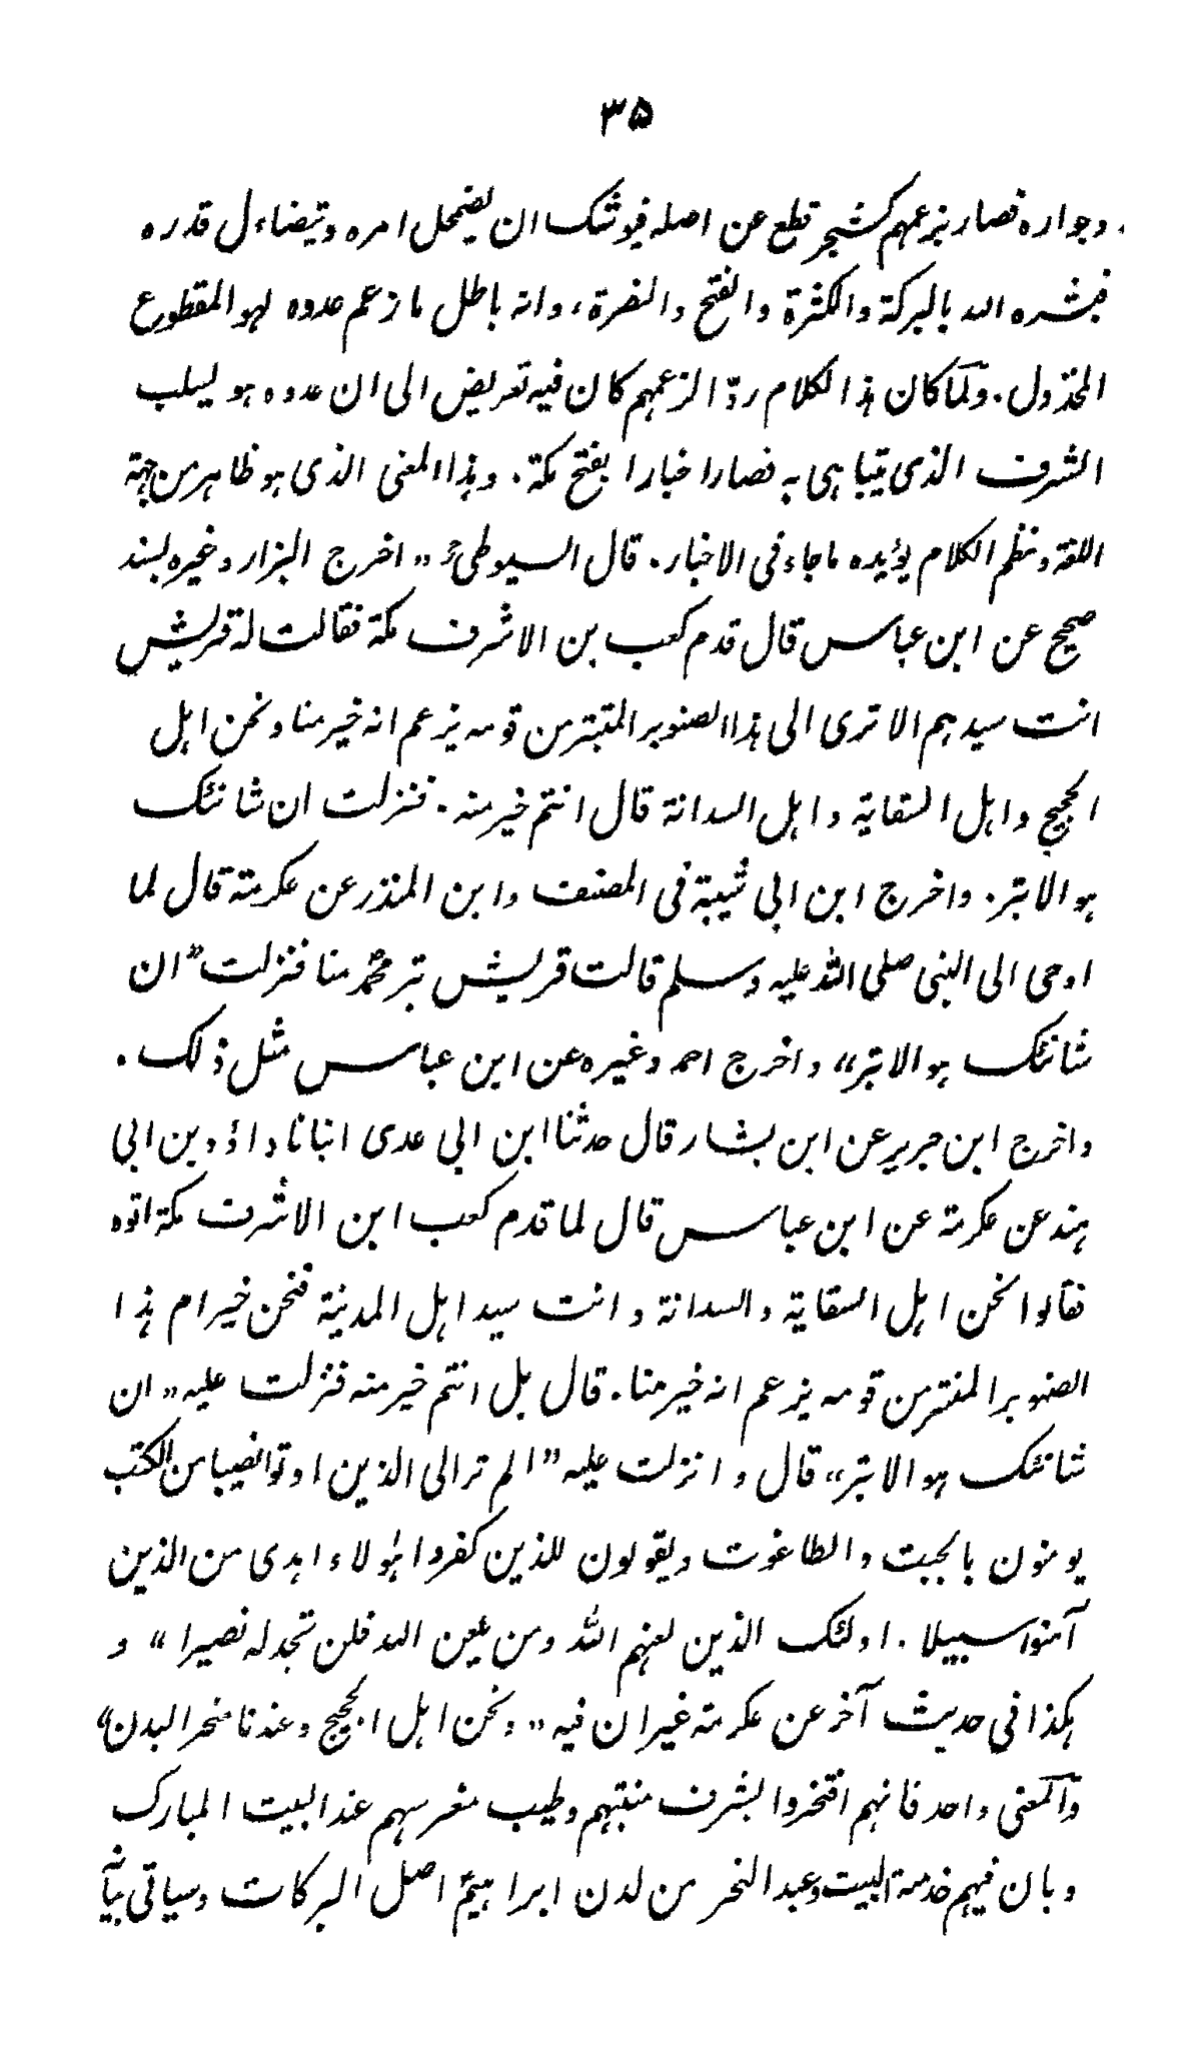 ۳۵
وجواره فصار بزعمهم كشجر قطع عن اصله فيوشك ان يضمحل امره ويتضاءل قدره
فبشره الله بالبركة والكثرة والفتح والنصرة، وانه باطل ما زعم عدوه لهو المقطوع
المخذول. ولمّا كان هذا الكلام ردّا لزعمهم كان فيه تعريض الى ان عدوه هو ليسلب
الشرف الذى يتباهى به فصار اخبارا بفتح مكة. وهذا المعنى الذى هو ظاهر من جهة
اللغة ونظم الكلام يؤيده ماجاء فى الاخبار. قال السيوطىؒ "اخرج البزار وغيره بسند
صحيح عن ابن عباس قال قدم كعب بن الاشرف مكة فقالت له قريش
انت سيدهم الا ترى الى هذا الصنوبر المتبتر من قومه يزعم انه خير منا ونحن اهل
الحجيج واهل السقاية واهل السدانة قال انتم خير منه. فنزلت ان شانئك
هو الابتر. واخرج ابن ابى شيبة فى المصنف وابن المنذر عن عكرمة قال لما
اوحى الى النبى صلى الله عليه وسلم قالت قريش بتر محمدؐ منا فنزلت "ان
شانئك هو الابتر" واخرج احمد وغيره عن ابن عباس مثل ذلك.
واخرج ابن جرير عن ابن بشار قال حدثنا ابن ابى عدى انبانا داؤد بن ابى
هند عن عكرمة عن ابن عباس قال لما قدم كعب ابن الاشرف مكة اتوه
فقالوا نحن اهل السقاية والسدانة وانت سيد اهل المدينة فنحن خير ام هذا
الصنوبر المنبتر من قومه يزعم انه خير منا. قال بل انتم خير منه فنزلت عليه "ان
شانئك هو الابتر" قال وانزلت عليه "الم تر الى الذين اوتوا نصيبا من الكتب
يومنون بالجبت والطاغوت ويقولون للذين كفروا هٰولاء اهدى من الذين
آمنوا سبيلا. اولئك الذين لعنهم الله ومن يلعن الله فلن تجد له نصيرا" و
هكذا فى حديث آخر عن عكرمة غير ان فيه "ونحن اهل الحجيج وعندنا منحر البدن"
وآلمعنى واحد فانهم افتخروا بشرف منبتهم وطيب مغرسهم عند البيت المبارك
وبان فيهم خدمة البيت وعبد النحر من لدن ابراهيمؑ اصل البركات وسياتى بيانه